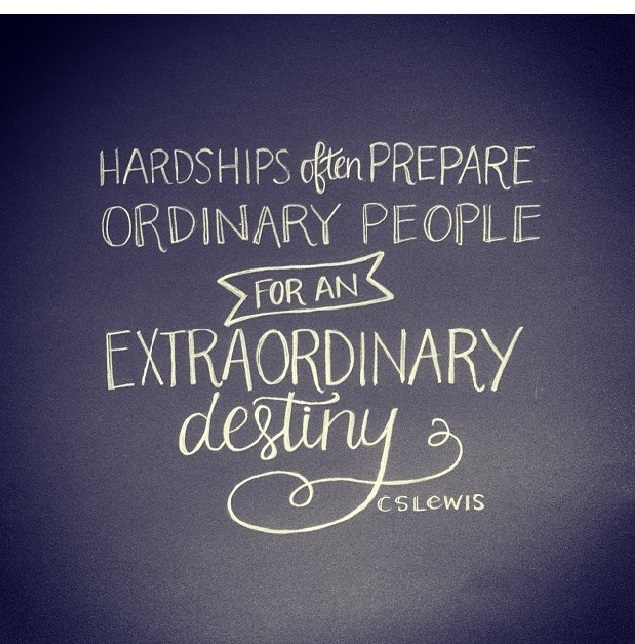 HARDSHIPS often PREPARE
ORDINARY PEOPLE
FOR AN
EXTRAORDINARY
destiny
CSLEWIS